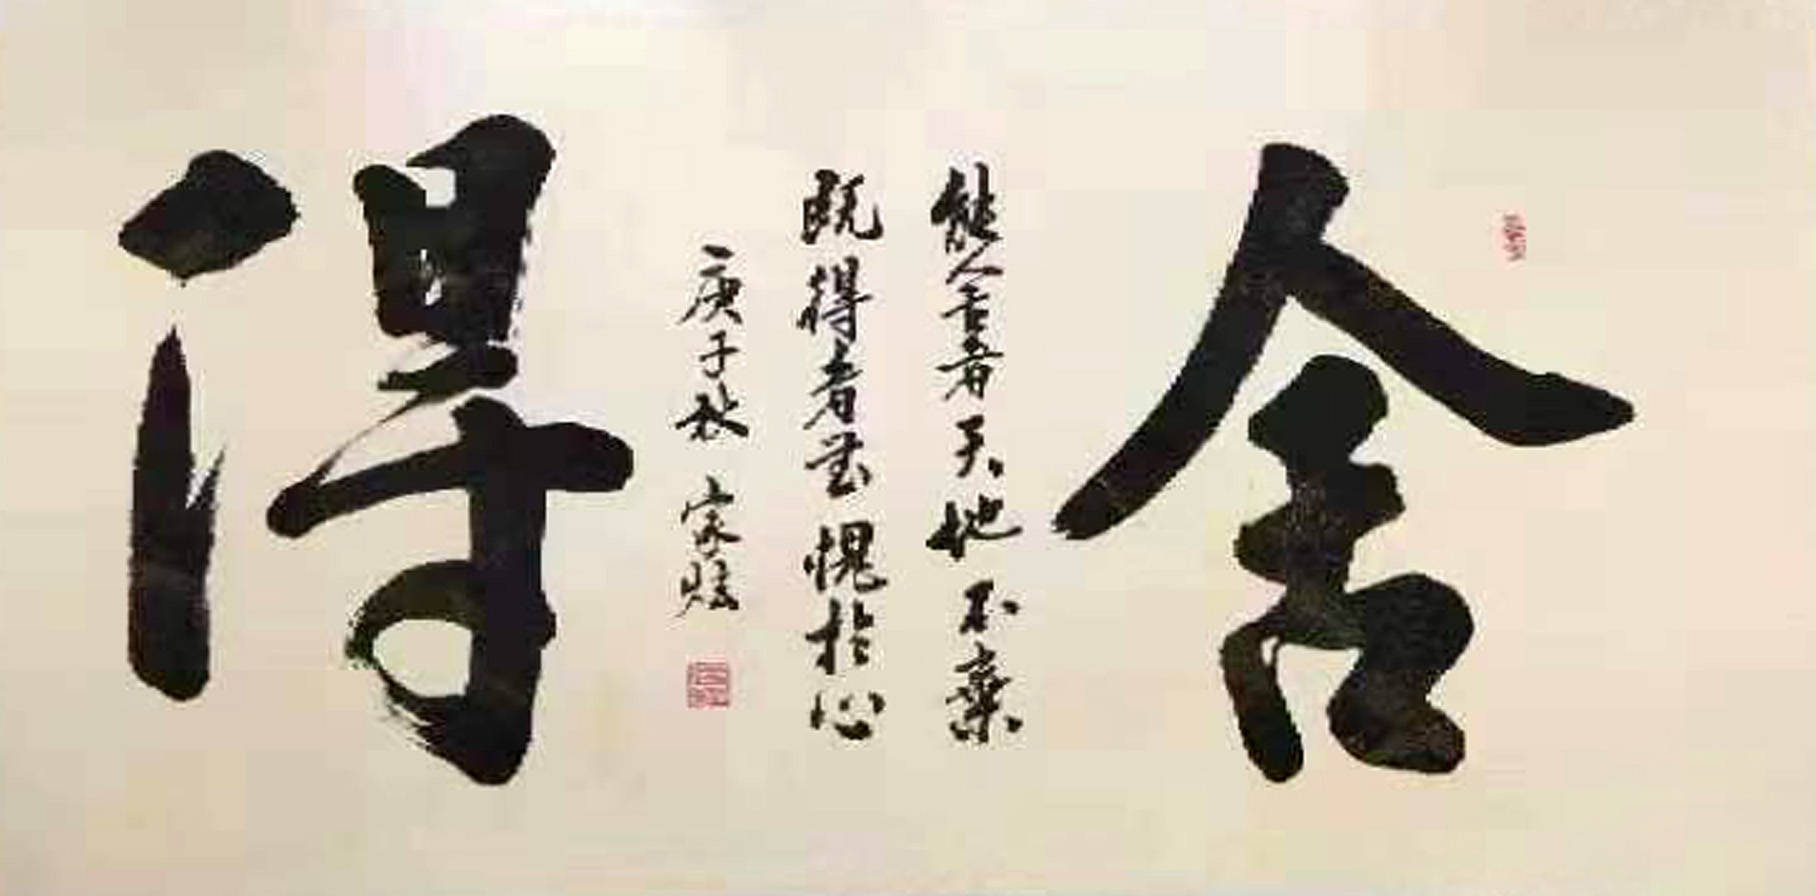 舍
能舍者天地不棄
既得者無愧於心
庚子秋 家
得